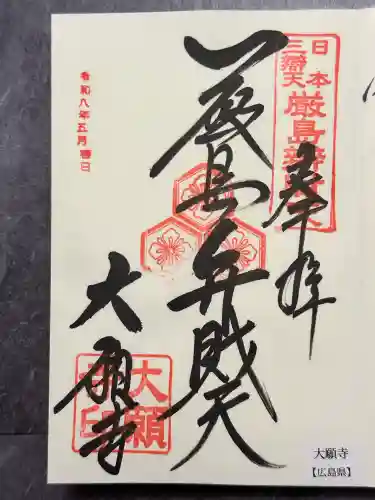 奉拝
日本
三辯天
厳島辯
厳島弁財天
大願寺
令和八年五月吉日
大願
印
大願寺
【広島県】